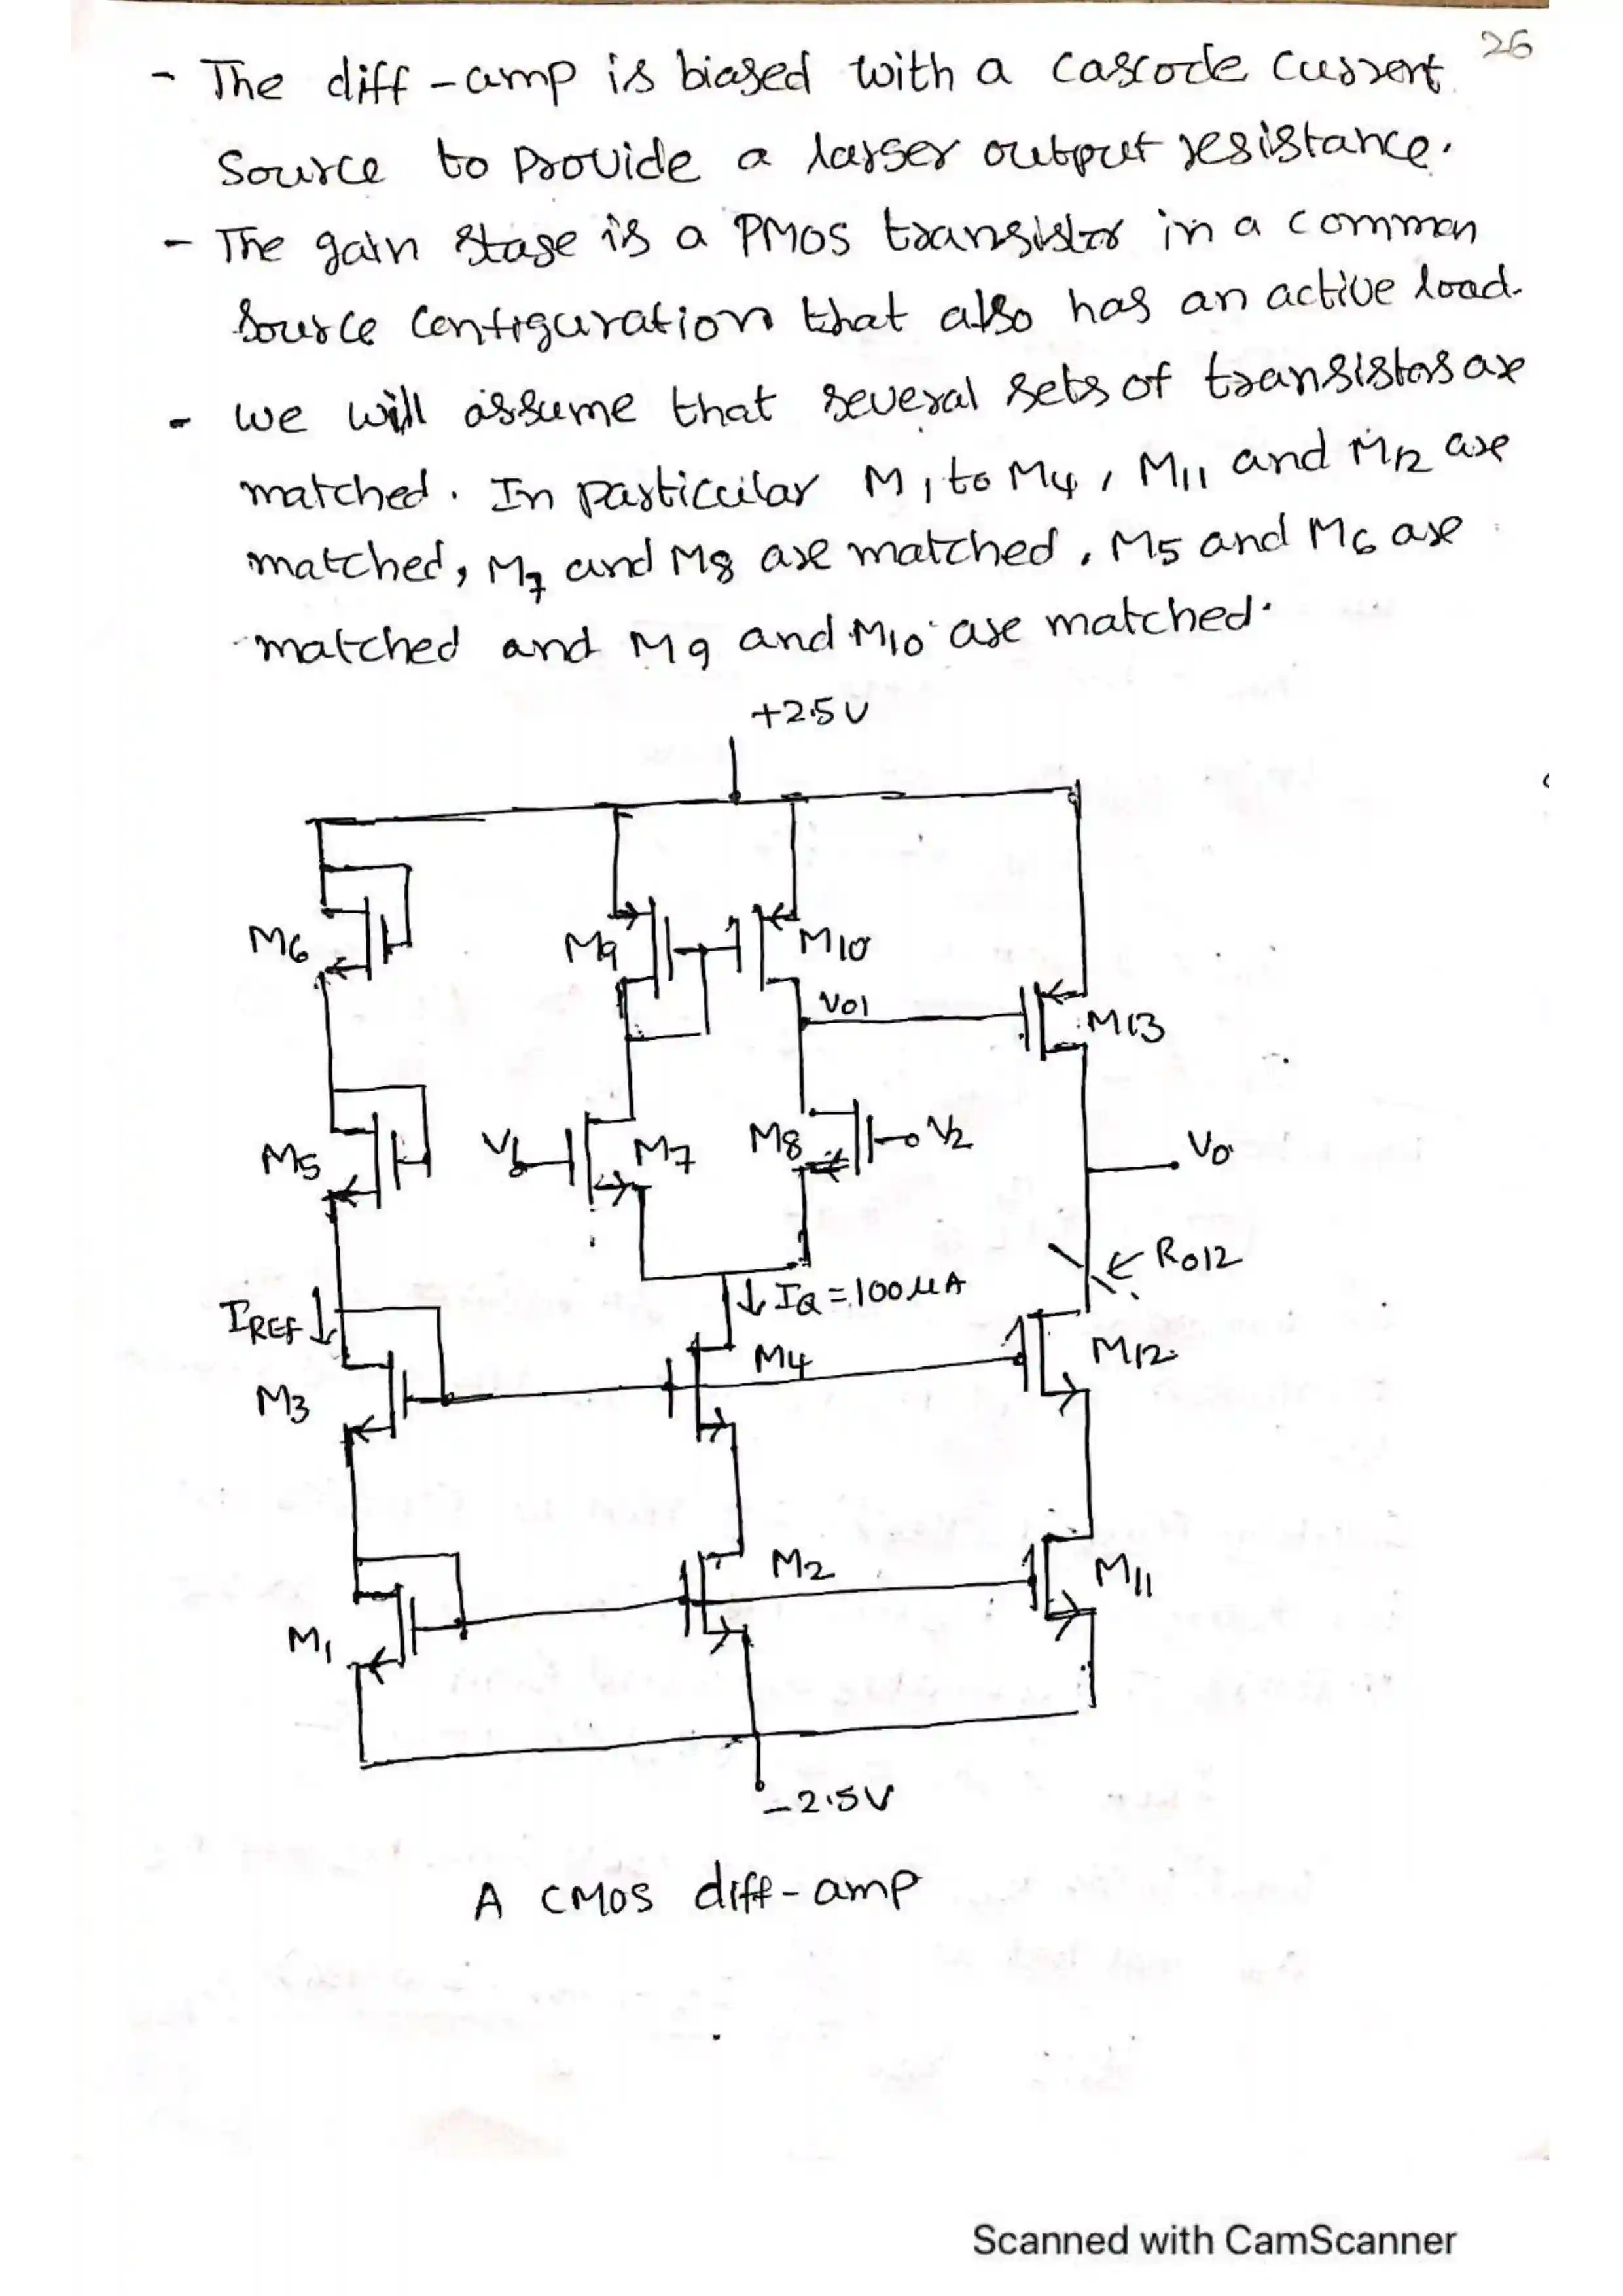 26
- The diff-amp is biased with a cascode current
source to provide a larger output resistance.
- The gain stage is a PMOS transistor in a common
source configuration that also has an active load.
- we will assume that several sets of transistors are
matched. In particular M1 to M4, M11 and M12 are
matched, M7 and M8 are matched, M5 and M6 are
matched and M9 and M10 are matched.
+2.5V
M6
M9
M10
VO1
M13
M5
V1
M7
M8
V2
Vo
RO12
IREF
IQ = 100 μA
M4
M12
M3
M2
M11
M1
-2.5V
A CMOS diff-amp
Scanned with CamScanner